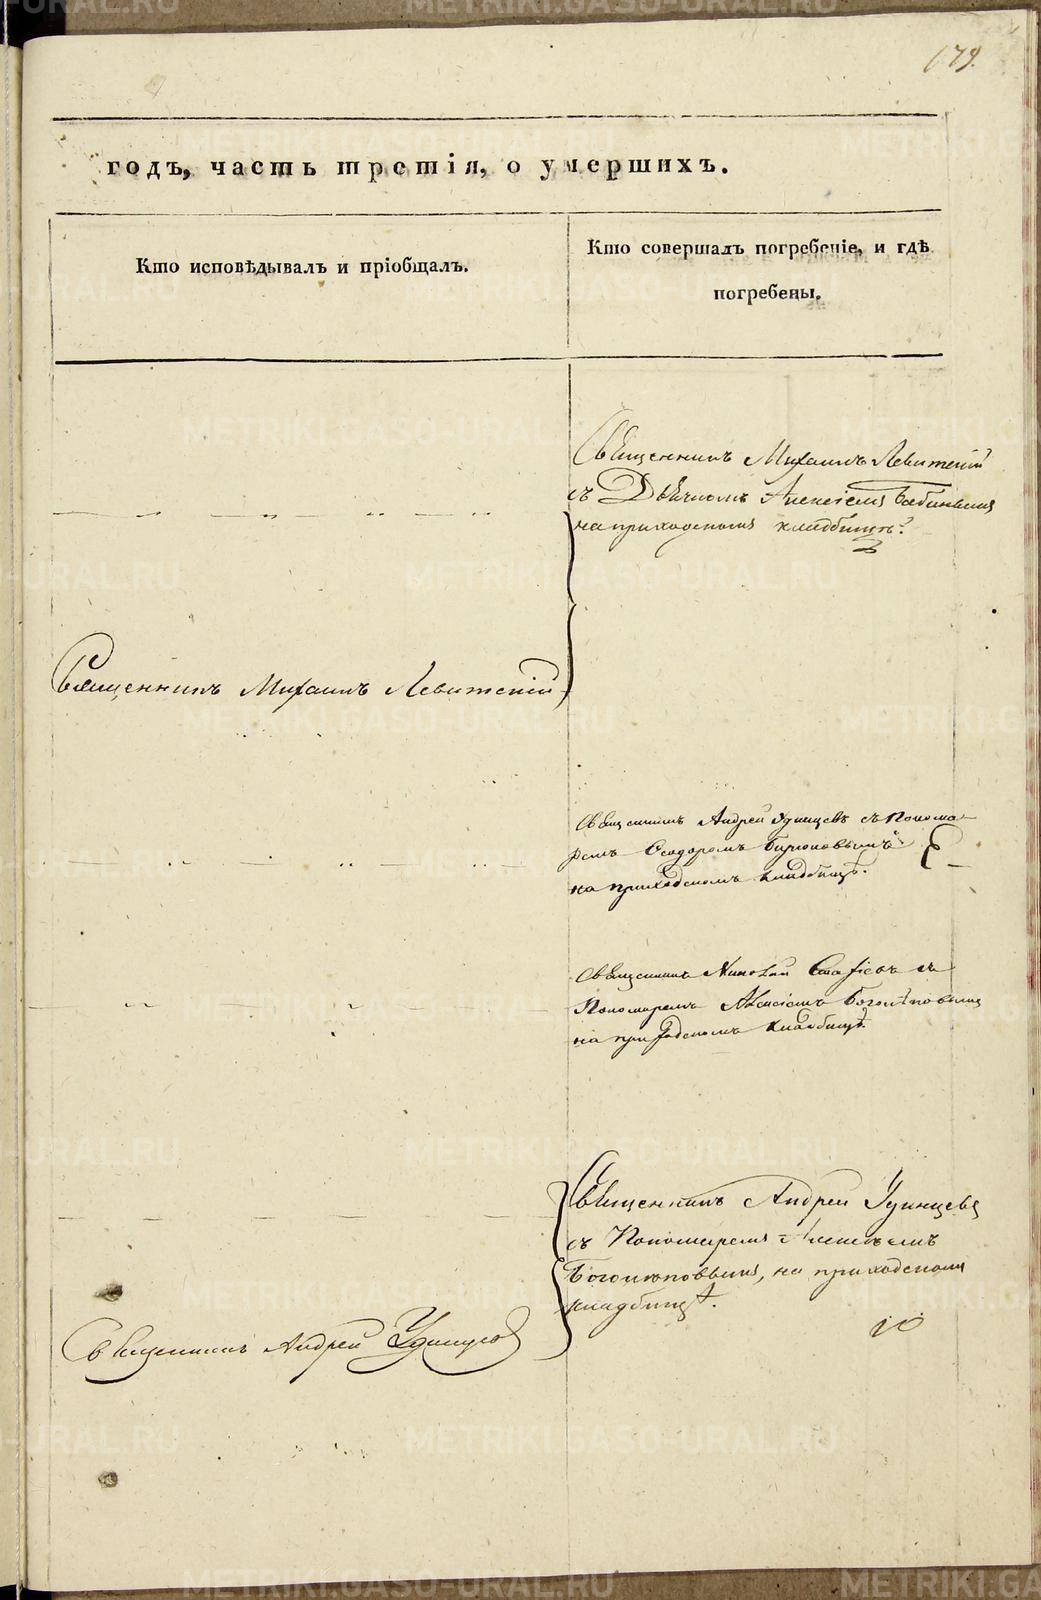 179.
годъ, часть третія, о умершихъ.
Кто исповѣдывалъ и пріобщалъ.
Кто совершалъ погребеніе, и гдѣ
погребены.
Священникъ Михаилъ Левитскій
съ Дьячкомъ Алексіемъ Бабинымъ
на приходскомъ кладбищѣ.
Священникъ Михаилъ Левитскій
Священникъ Андрей Удинцевъ съ Понома-
ремъ Ѳеодоромъ
на приходскомъ кладбищѣ.
Священникъ Николай съ
Пономаремъ Алексіемъ Боголѣповымъ
на приходскомъ кладбищѣ.
Священникъ Андрей Удинцевъ
съ Пономаремъ Алексѣемъ
Боголѣповымъ, на приходскомъ
кладбищѣ.
10
Священникъ Андрей Удинцовъ
METRIKI.GASO-URAL.RU